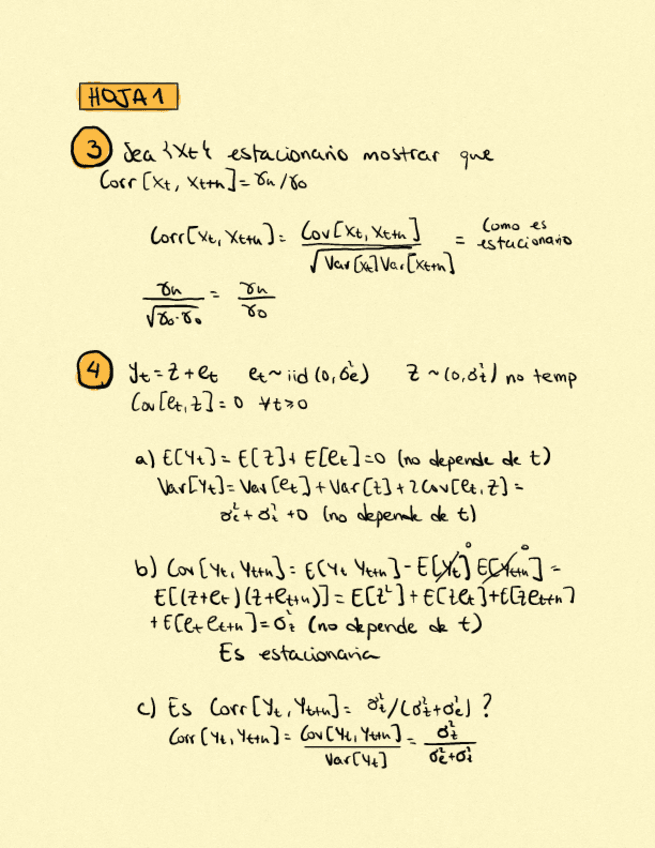 HOJA 1
3 Sea {Xt} estacionario mostrar que
Corr[Xt, Xt+h] = γh/γ0
Corr[Xt, Xt+h] = Cov[Xt, Xt+h] / √Var[Xt]Var[Xt+h] = Como es estacionario
γh/√γ0·γ0 = γh/γ0
4 Yt = Z + et et ~ iid (0, σ²e) Z ~ (0, σ²z) no temp
Cov[et, Z] = 0 ∀t>0
a) E[Yt] = E[Z] + E[et] = 0 (no depende de t)
Var[Yt] = Var[et] + Var[Z] + 2Cov[et, Z] =
σ²e + σ²z + 0 (no depende de t)
b) Cov[Yt, Yt+h] = E[Yt Yt+h] - E[Yt]⁰ E[Yt+h]⁰ =
E[(Z+et)(Z+et+h)] = E[Z²] + E[Zet] + E[Zet+h]
+ E[et et+h] = σ²z (no depende de t)
Es estacionaria
c) Es Corr[Yt, Yt+h] = σ²z/(σ²z+σ²e) ?
Corr[Yt, Yt+h] = Cov[Yt, Yt+h] / Var[Yt] = σ²z / σ²e+σ²z